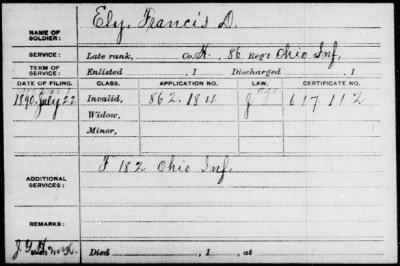 NAME OF SOLDIER: Ely, Francis D.
SERVICE: Late rank, Co. H, 86 Reg't Ohio Inf,
TERM OF SERVICE: Enlisted , 1 Discharged , 1
DATE OF FILING. CLASS. APPLICATION NO. LAW. CERTIFICATE NO.
1890, July 22 Invalid, 862.184 J 617.112
Widow,
Minor,
ADDITIONAL SERVICES: F 182 Ohio Inf.
REMARKS:
Died , 1 , at